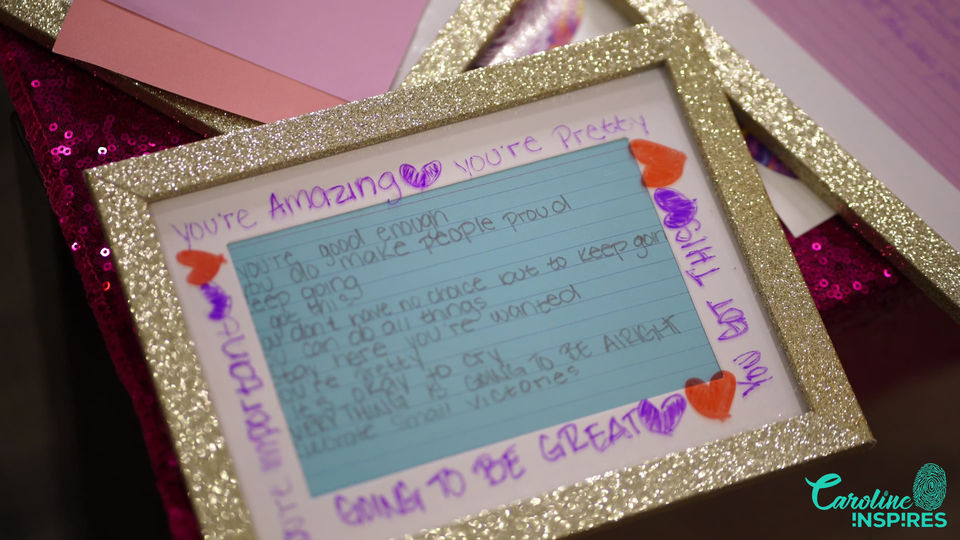 you're Amazing you're Pretty
you're good enough
you do make people proud
keep going
got this
you don't have no choice but to keep goin
you can do all things
stay here you're wanted
you're pretty
it's okay to cry
EVERYTHING IS GOING TO BE AlRIGHT
small victories
THIS
YOU GOT
you're important
GOING TO BE GREAT
Caroline
INSPIRES